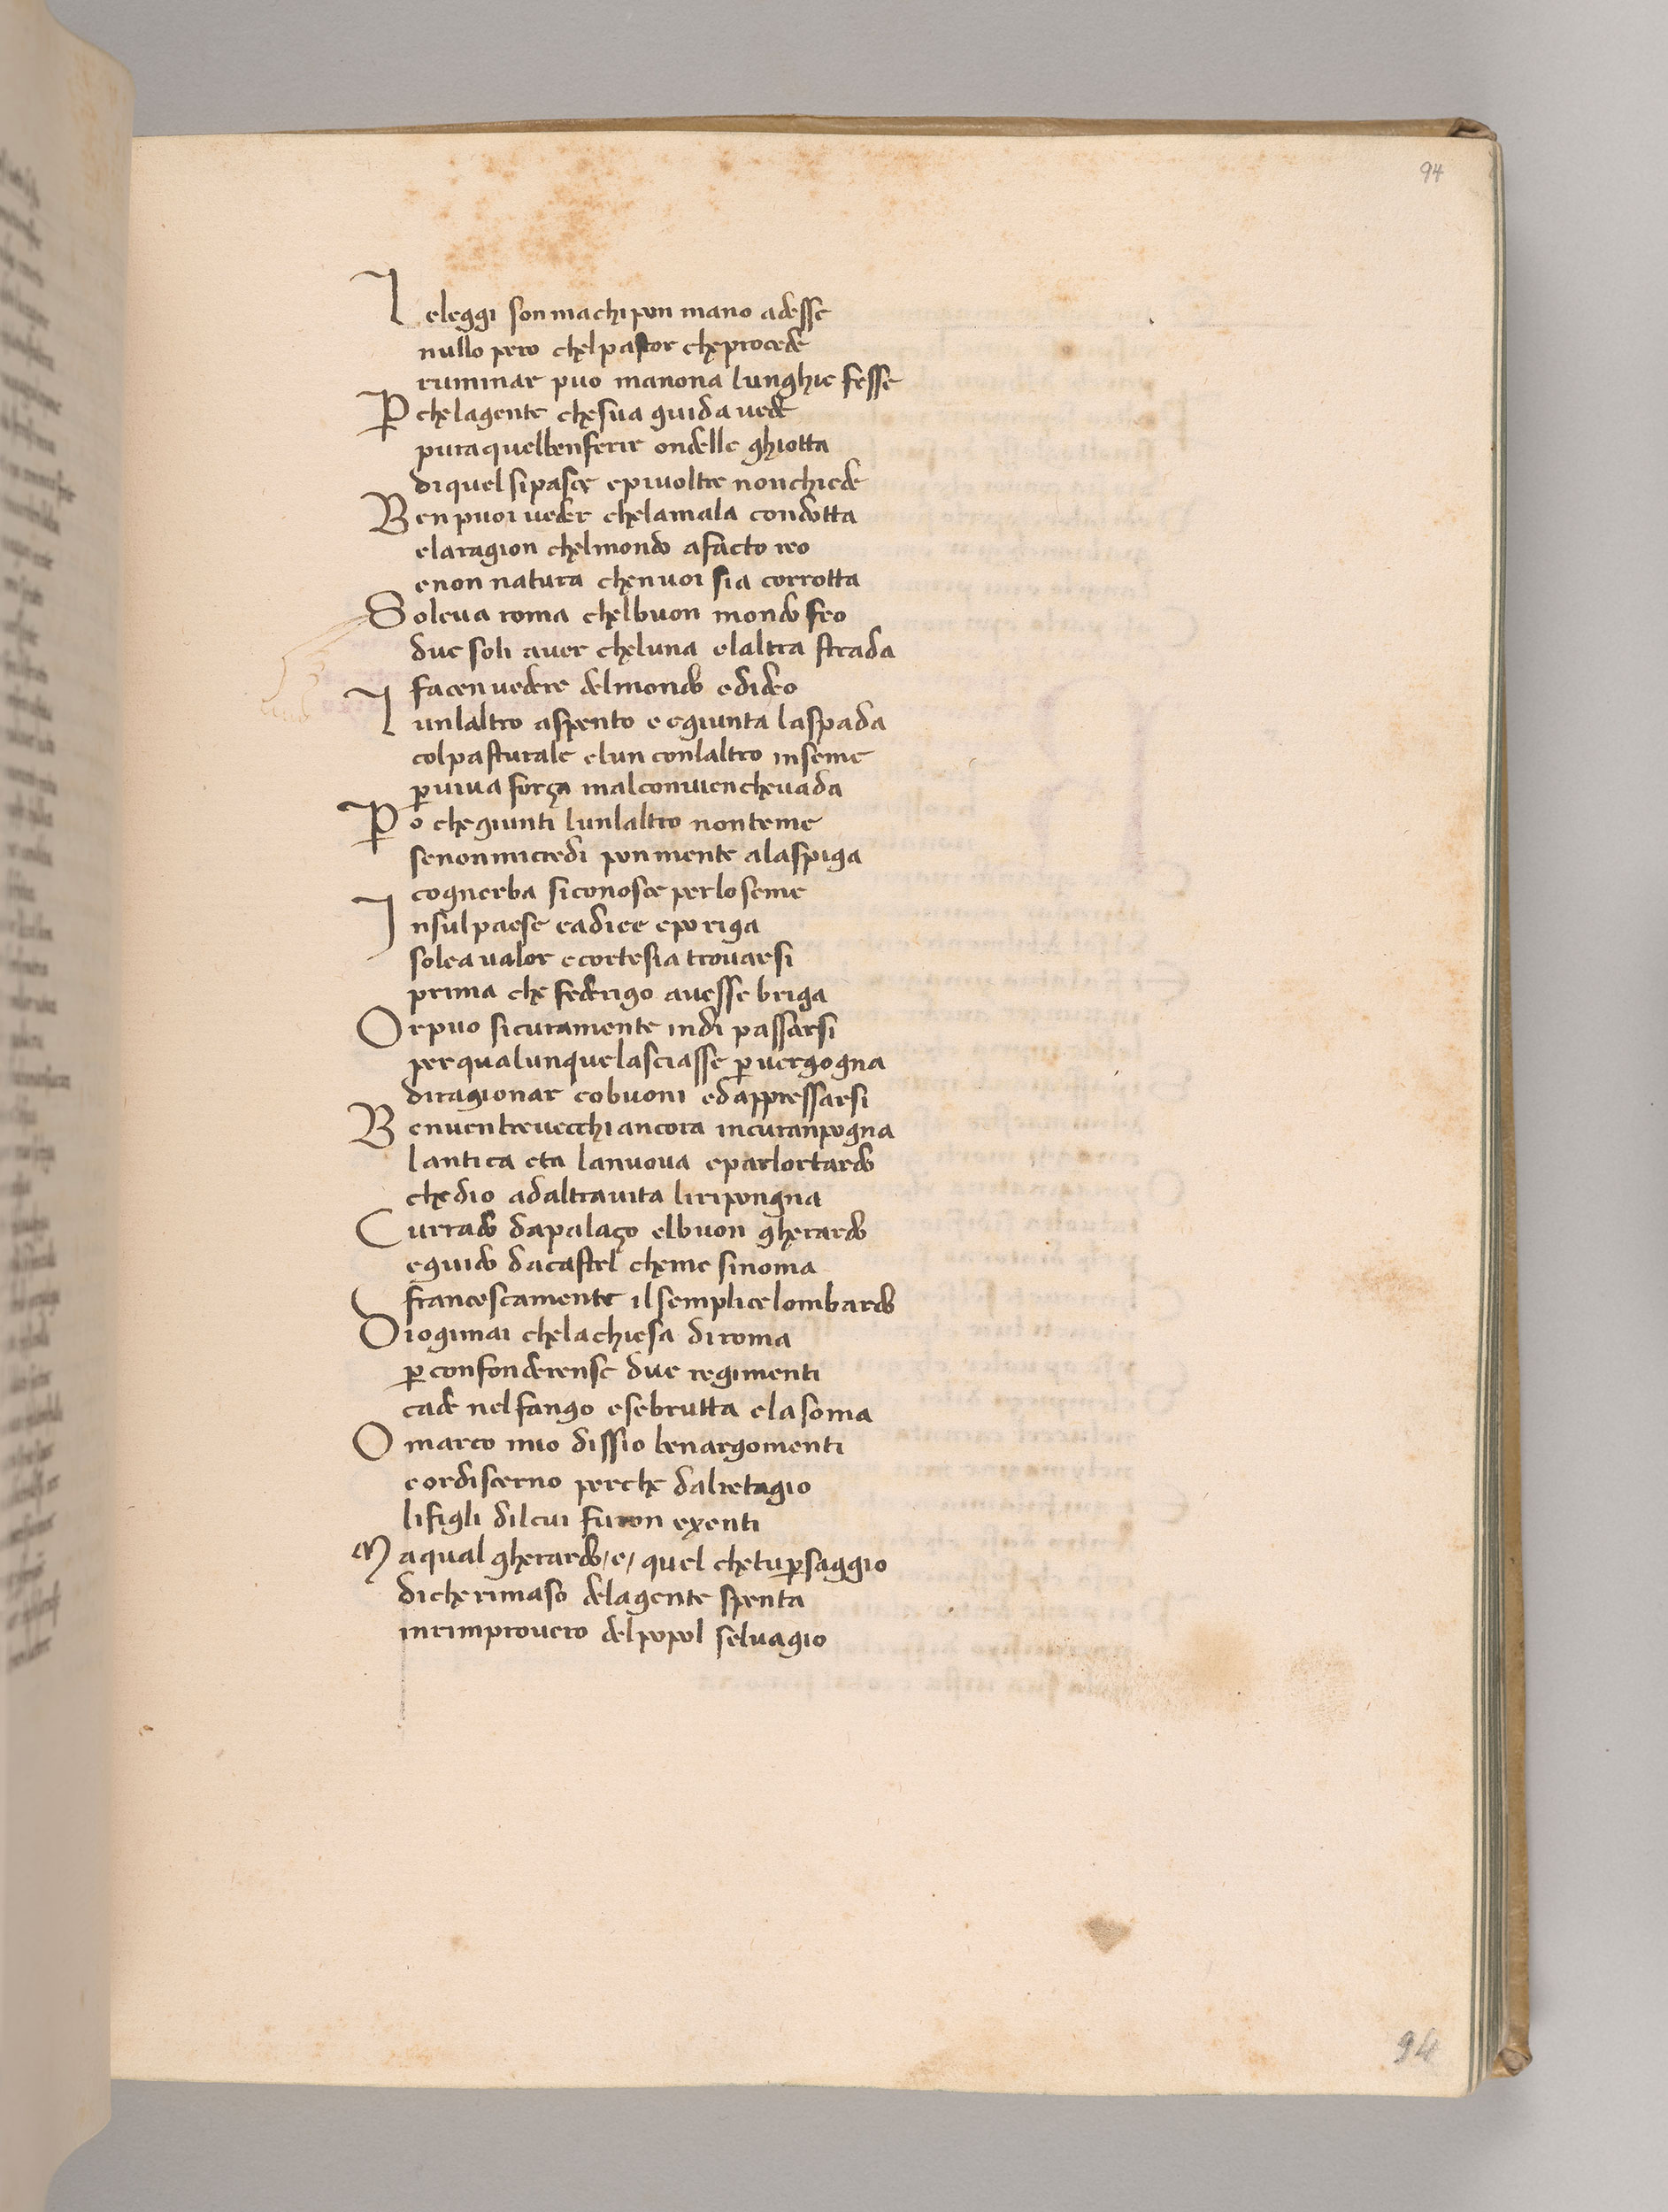 94
Leleggi son machi pon mano adesse
nullo pero chelpastor cheprocede
ruminar puo manona lunghie fesse
P chelagente chesua guida vede
pura quelbenferir ondelle ghiotta
diquel sipasce epiuoltre nonchiede
Ben puoi ueder chelamala condotta
elaragion chelmondo afacto reo
enon natura chenuoi sia corrotta
Soleua roma chelbuon mondo feo
due soli auer cheluna elaltra strada
facen uedere delmondo edideo
Lunlaltro aspento e egiunta laspada
colpasturale elun conlaltro inseme
p uiua força malconuien cheuada
Po chegiunti lunlaltro nonteme
senonmicredi ponmente alaspiga
cognerba siconosce perloseme
Insulpaese cadice eporiga
solea ualor ecortesia trouarsi
prima che federigo auesse briga
Orpuo sicuramente indi passarsi
perqualunquelasciasse p uergogna
diragionar cobuoni edappressarsi
Benuentreuecchi ancora incuranpogna
lantica eta lanuoua eparlortardo
chedio adaltrauita liripongna
Currado dapalaço elbuon gherardo
eguido dacastel cheme sinoma
francescamente ilsemplicelombardo
Diogimai chelachiesa diroma
p confonderense due regimenti
cade nelfango esebrutta elasoma
O marco mio dissio benargomenti
eordiscerno perche dalretagio
lifigli dilcui furon exenti
Maqual gherardo /e/ quel chetupsaggio
diche rimaso delagente spenta
inrimprouero delpopol seluagio
94